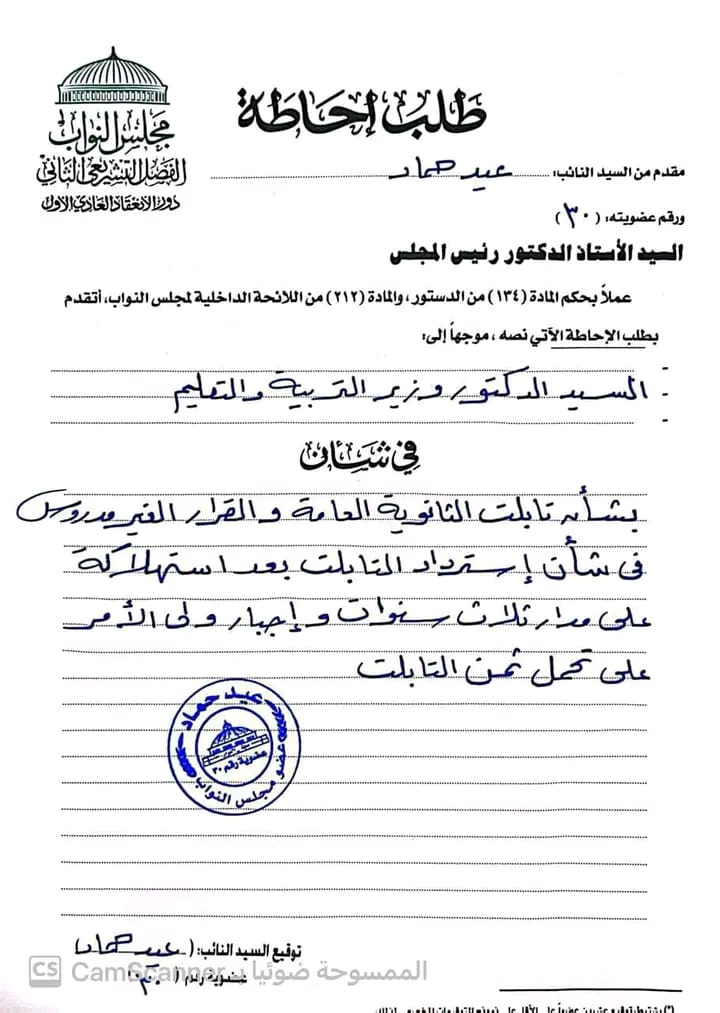 مجلس النواب
الفصل التشريعي الثاني
دور الانعقاد العادي الأول
طلب إحاطة
مقدم من السيد النائب: عيد حماد
ورقم عضويته: (٣٠)
السيد الأستاذ الدكتور رئيس المجلس
عملاً بحكم المادة (١٣٤) من الدستور، والمادة (٢١٢) من اللائحة الداخلية لمجلس النواب، أتقدم
بطلب الإحاطة الآتي نصه، موجهاً إلى:
السيد الدكتور وزير التربية والتعليم
في شأن
بشأن تابلت الثانوية العامة والقرار الغير مدروس
فى شأن إسترداد التابلت بعد استهلاكة
على مدار ثلاث سنوات وإجبار ولى الأمر
على تحمل ثمن التابلت
عيد حماد
عضوية رقم ٣٠
عضو مجلس النواب
توقيع السيد النائب: (عيد حماد)
عضوية رقم (٣٠)
CS CamScanner الممسوحة ضوئيا بـ